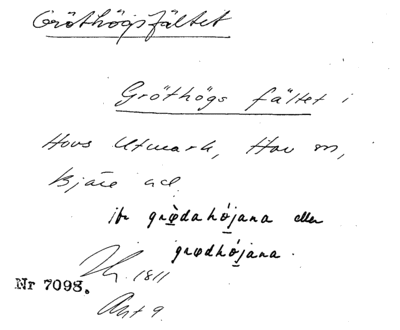 Gröthögsfältet
Gröthögs fältet i
Hovs Utmark, Hov sn,
Bjäre hd.
jfr grœ̀dahǫ́jana eller
grœdhǫ́jana.
1811
Nr 7098.
Ant 9